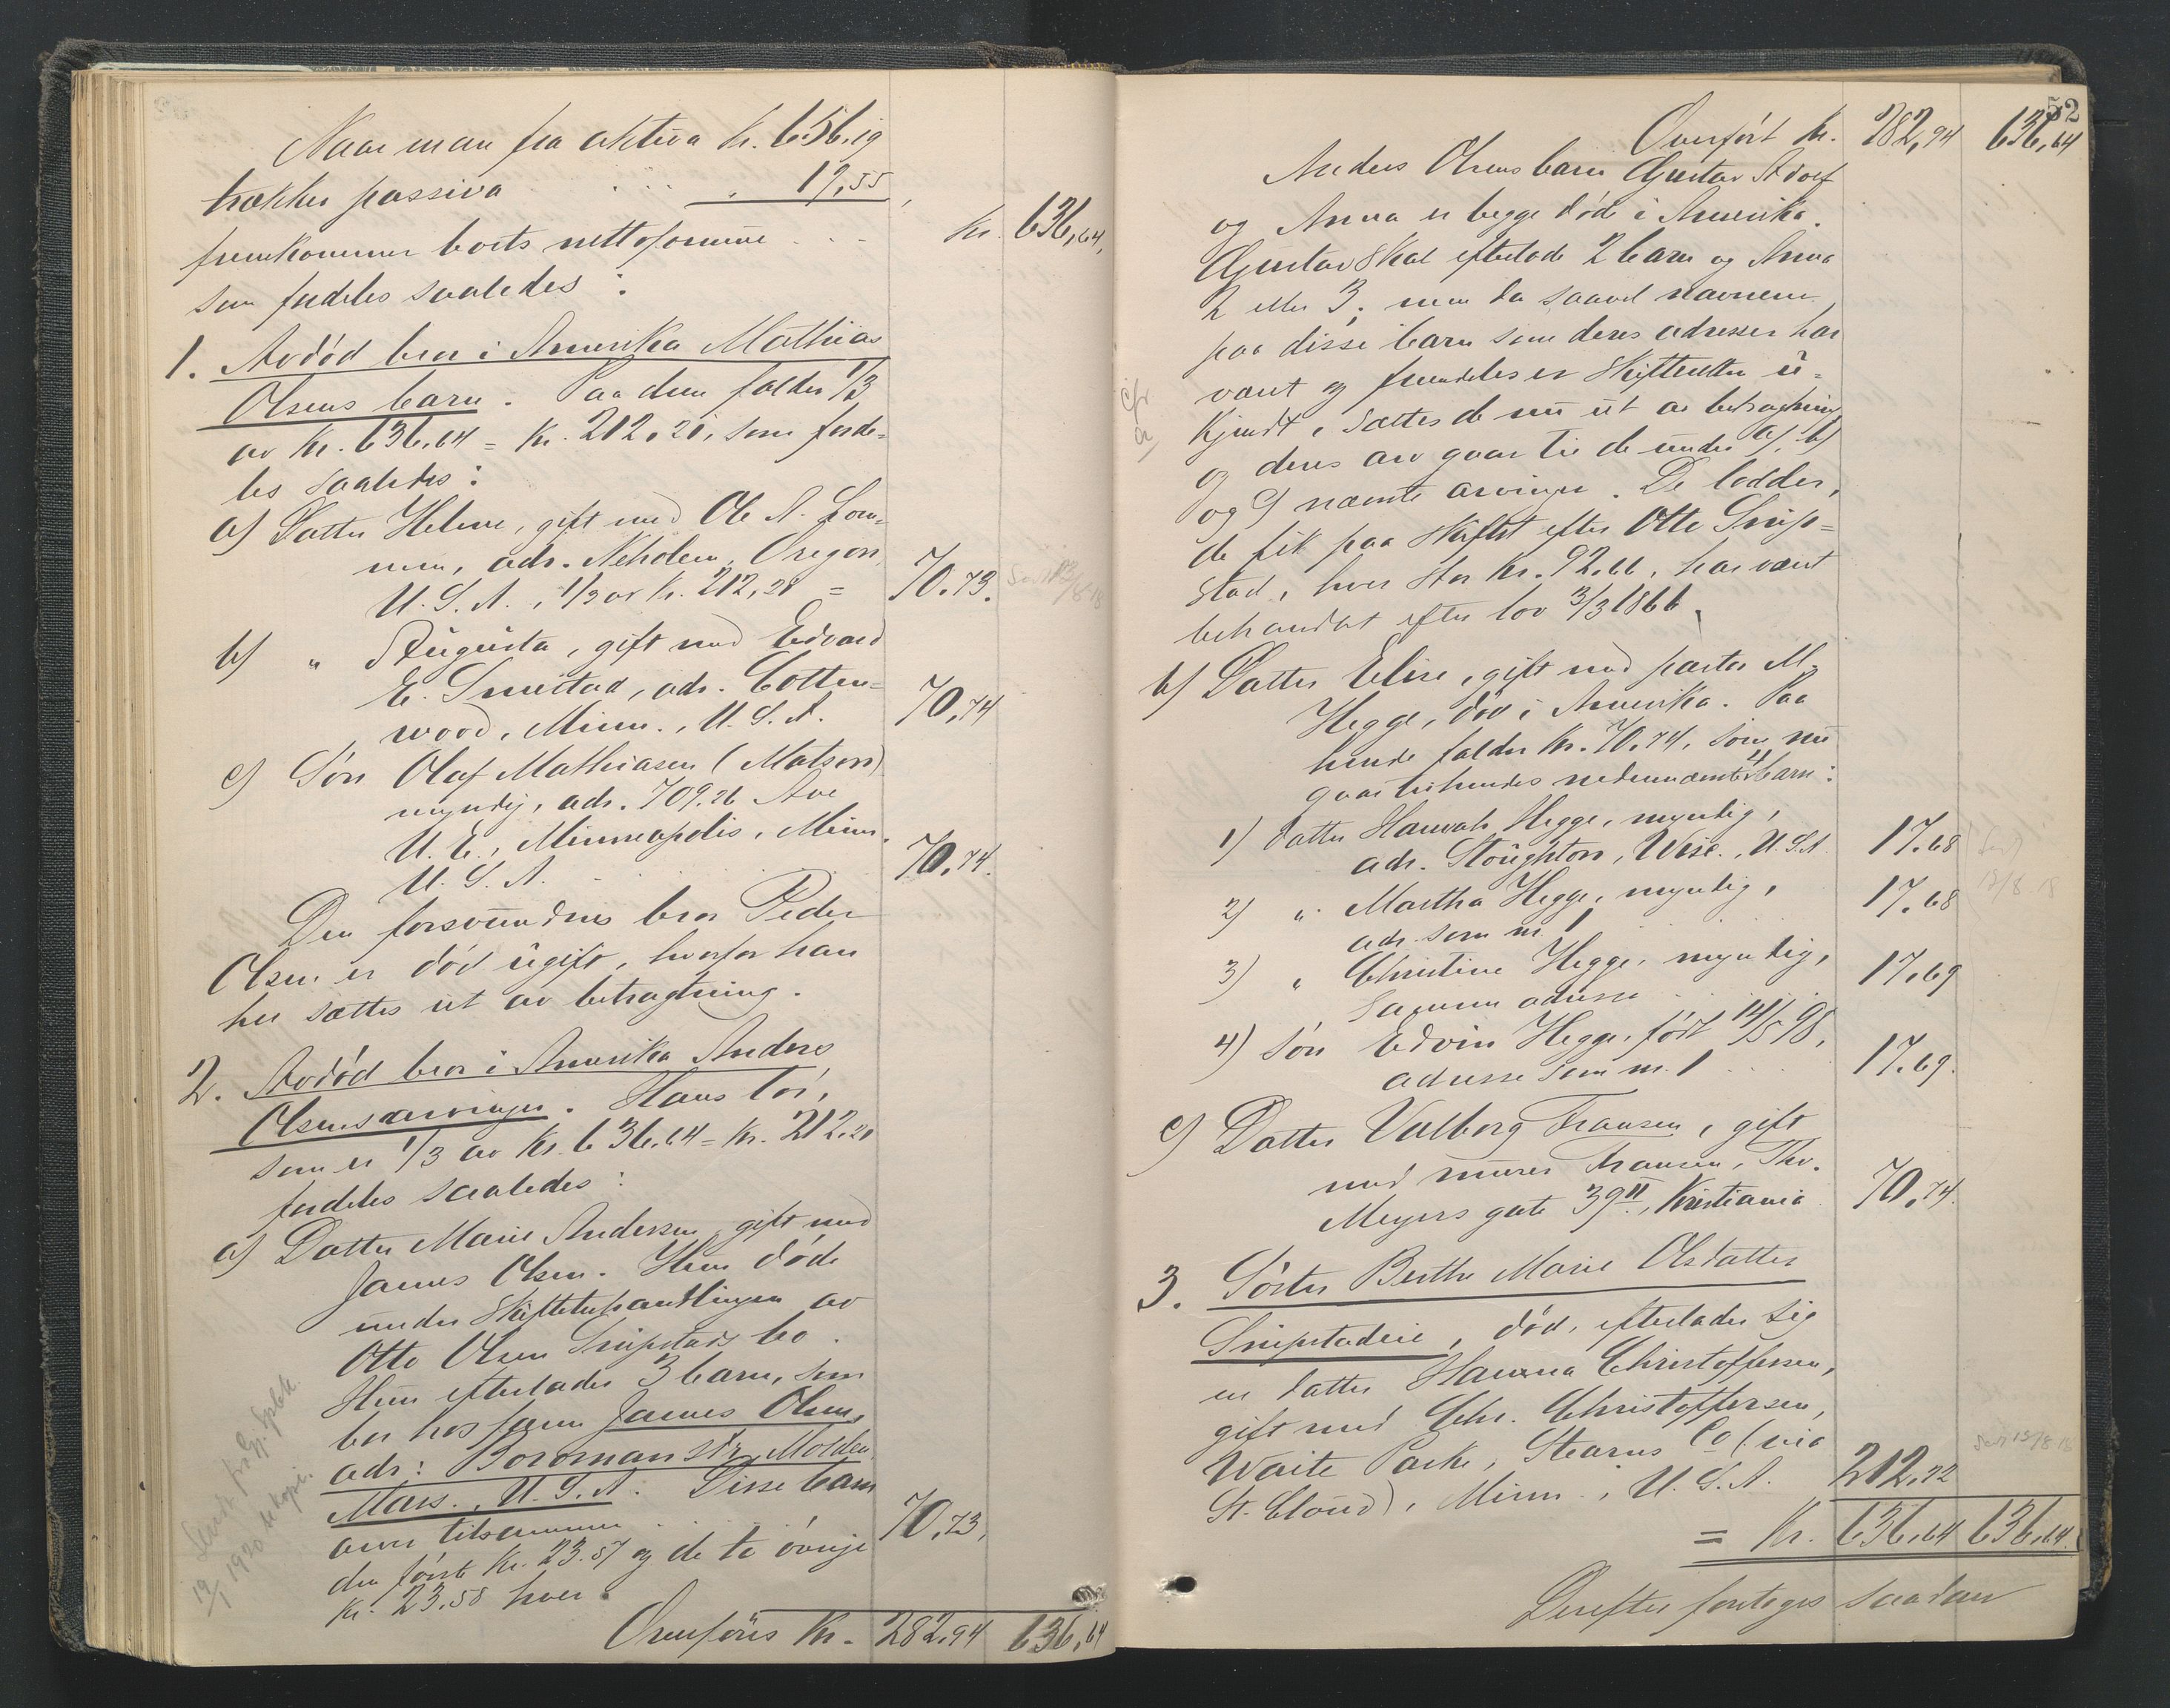 Naar man fra aktiva kr. 656.19
trækker passiva . . . " 19,55
fremkommer boets nettoformue . . . kr. 636,64,
som fordeles saaledes:
1. Avdød bror i Amerika Mathias
Olsens barn. Paa dem falder 1/3
av kr. 636,64 = kr. 212,21, som forde-
les saaledes:
a) Datter Helene, gift med Ole A. Lom-
men, adr. Nehalem, Oregon,
U.S.A., 1/3 av kr. 212,21 = 70.73.
b) " Augusta, gift med Edvard
E. Smestad, adr. Cotton-
wood, Minn., U.S.A. 70,74
c) Søn Olaf Mathiasen (Matson)
myndig, adr. 709.26 Ave
N.E., Minneapolis, Minn.
U.S.A. . . . 70,74.
Den forsvundne bror Peder
Olsen er død ugift, hvorfor han
her sættes ut av betragtning.
2. Avdød bror i Amerika Anders
Olsens arvinger. Hans lod,
som er 1/3 av kr. 636,64 = kr. 212.21
fordeles saaledes:
a) Datter Marie Andersen, gift med
James Olsen. Hun døde
under skiftebehandlingen av
Otto Olsen Snipstads bo.
Hun efterlader 3 barn, som
bor hos faren James Olsen,
adr: Boroman str. Molden
Mass., U.S.A. Disse barn
arver tilsammen . . . 70,73,
den første kr. 23.57 og de to øvrige
kr. 23.58 hver.
Overføres kr. 282,94 636,64
19/1 1920
52
Overført kr. 282,94 636,64
Anders Olsens barn Gustav Adolf
og Anna er begge døde i Amerika.
Gustav skal efterlade 2 barn og Anna
2 eller 3; men da saavel navnene
paa disse barn som deres adresser har
været og fremdeles er skifteretten u-
kjendt, sættes de nu ut av betragtning
og deres arv gaar til de under a), b)
og c) nævnte arvinger. De lodder,
de fik paa skiftet efter Otto Snip-
stad, hver stor kr. 92.66, har været
behandlet efter lov 3/3 1866.
b) Datter Elise, gift med pastor M.
Hegge, død i Amerika. Paa
hende falder kr. 70.74, som nu
gaar til hendes nedennævnte 4 barn:
1) Datter Hannah Hegge, myndig,
adr. Stoughton, Wisc., U.S.A. 17.68
2) " Martha Hegge, myndig,
adr. som nr. 1 17.68
3) " Christine Hegge, myndig,
samme adresse . . . 17.69
4) Søn Edvin Hegge, født 14/5 98,
adresse som nr. 1 . . . 17.69.
c) Datter Valborg Fransen, gift
med murer Fransen, Thv.
Meyers gate 39 II, Kristiania 70,74.
3. Søster Berthe Marie Olsdatter
Snipstadeie, død, efterlader sig
en datter Hanna Christoffersen,
gift med Chr. Christoffersen,
Waite Parke, Stearns Co (via
St. Cloud), Minn., U.S.A. 212,22
= Kr. 636,64 636,64.
Derefter foretoges saadan